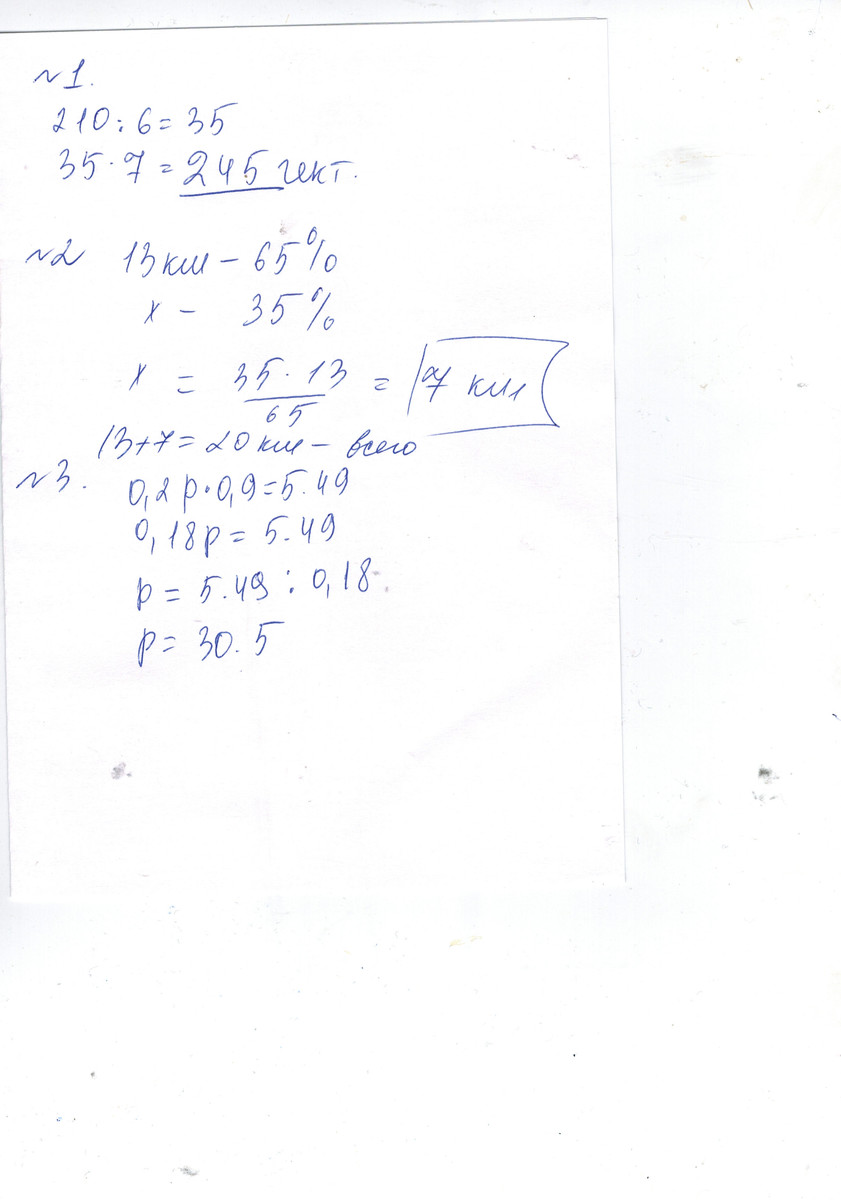 №1.
210 : 6 = 35
35 · 7 = 245 гект.
№2 13 км – 65%
x – 35%
x = 35 · 13 / 65 = 7 км
13 + 7 = 20 км – всего
№3. 0,2 p · 0,9 = 5.49
0,18p = 5.49
p = 5.49 : 0,18
p = 30.5